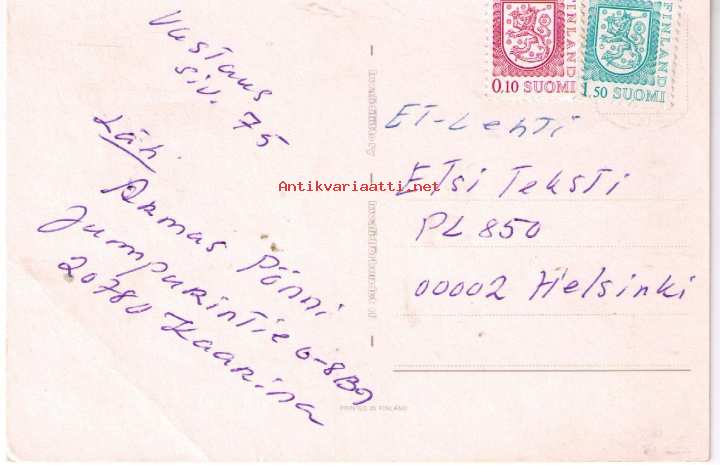 Vastaus
siv. 75
Läh.
Armas Pönni
Jumpurintie 6-8B9
20780 Kaarina
FINLAND
0.10 SUOMI
FINLAND
1.50 SUOMI
ET-Lehti
Etsi Teksti
PL 850
00002 Helsinki
Antikvariaatti.net
PRINTED IN FINLAND